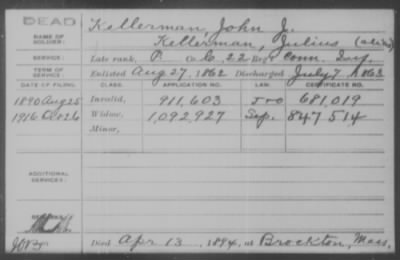 DEAD
NAME OF SOLDIER:
Kellerman, John J.
Kellerman, Julius (alias)
SERVICE: Late rank, P. Co. C, 22 Reg't Conn. Inf.
TERM OF SERVICE: Enlisted Aug 27, 1862 Discharged July 7, 1863
DATE OF FILING. CLASS. APPLICATION NO. LAW. CERTIFICATE NO.
1890 Aug 25 Invalid, 911,603 681,019
1916 Oct 26 Widow, 1,092,927 Sep. 847514
Minor,
ADDITIONAL SERVICES:
REMARKS:
Died Apr 13, 1894, at Brockton, Mass.